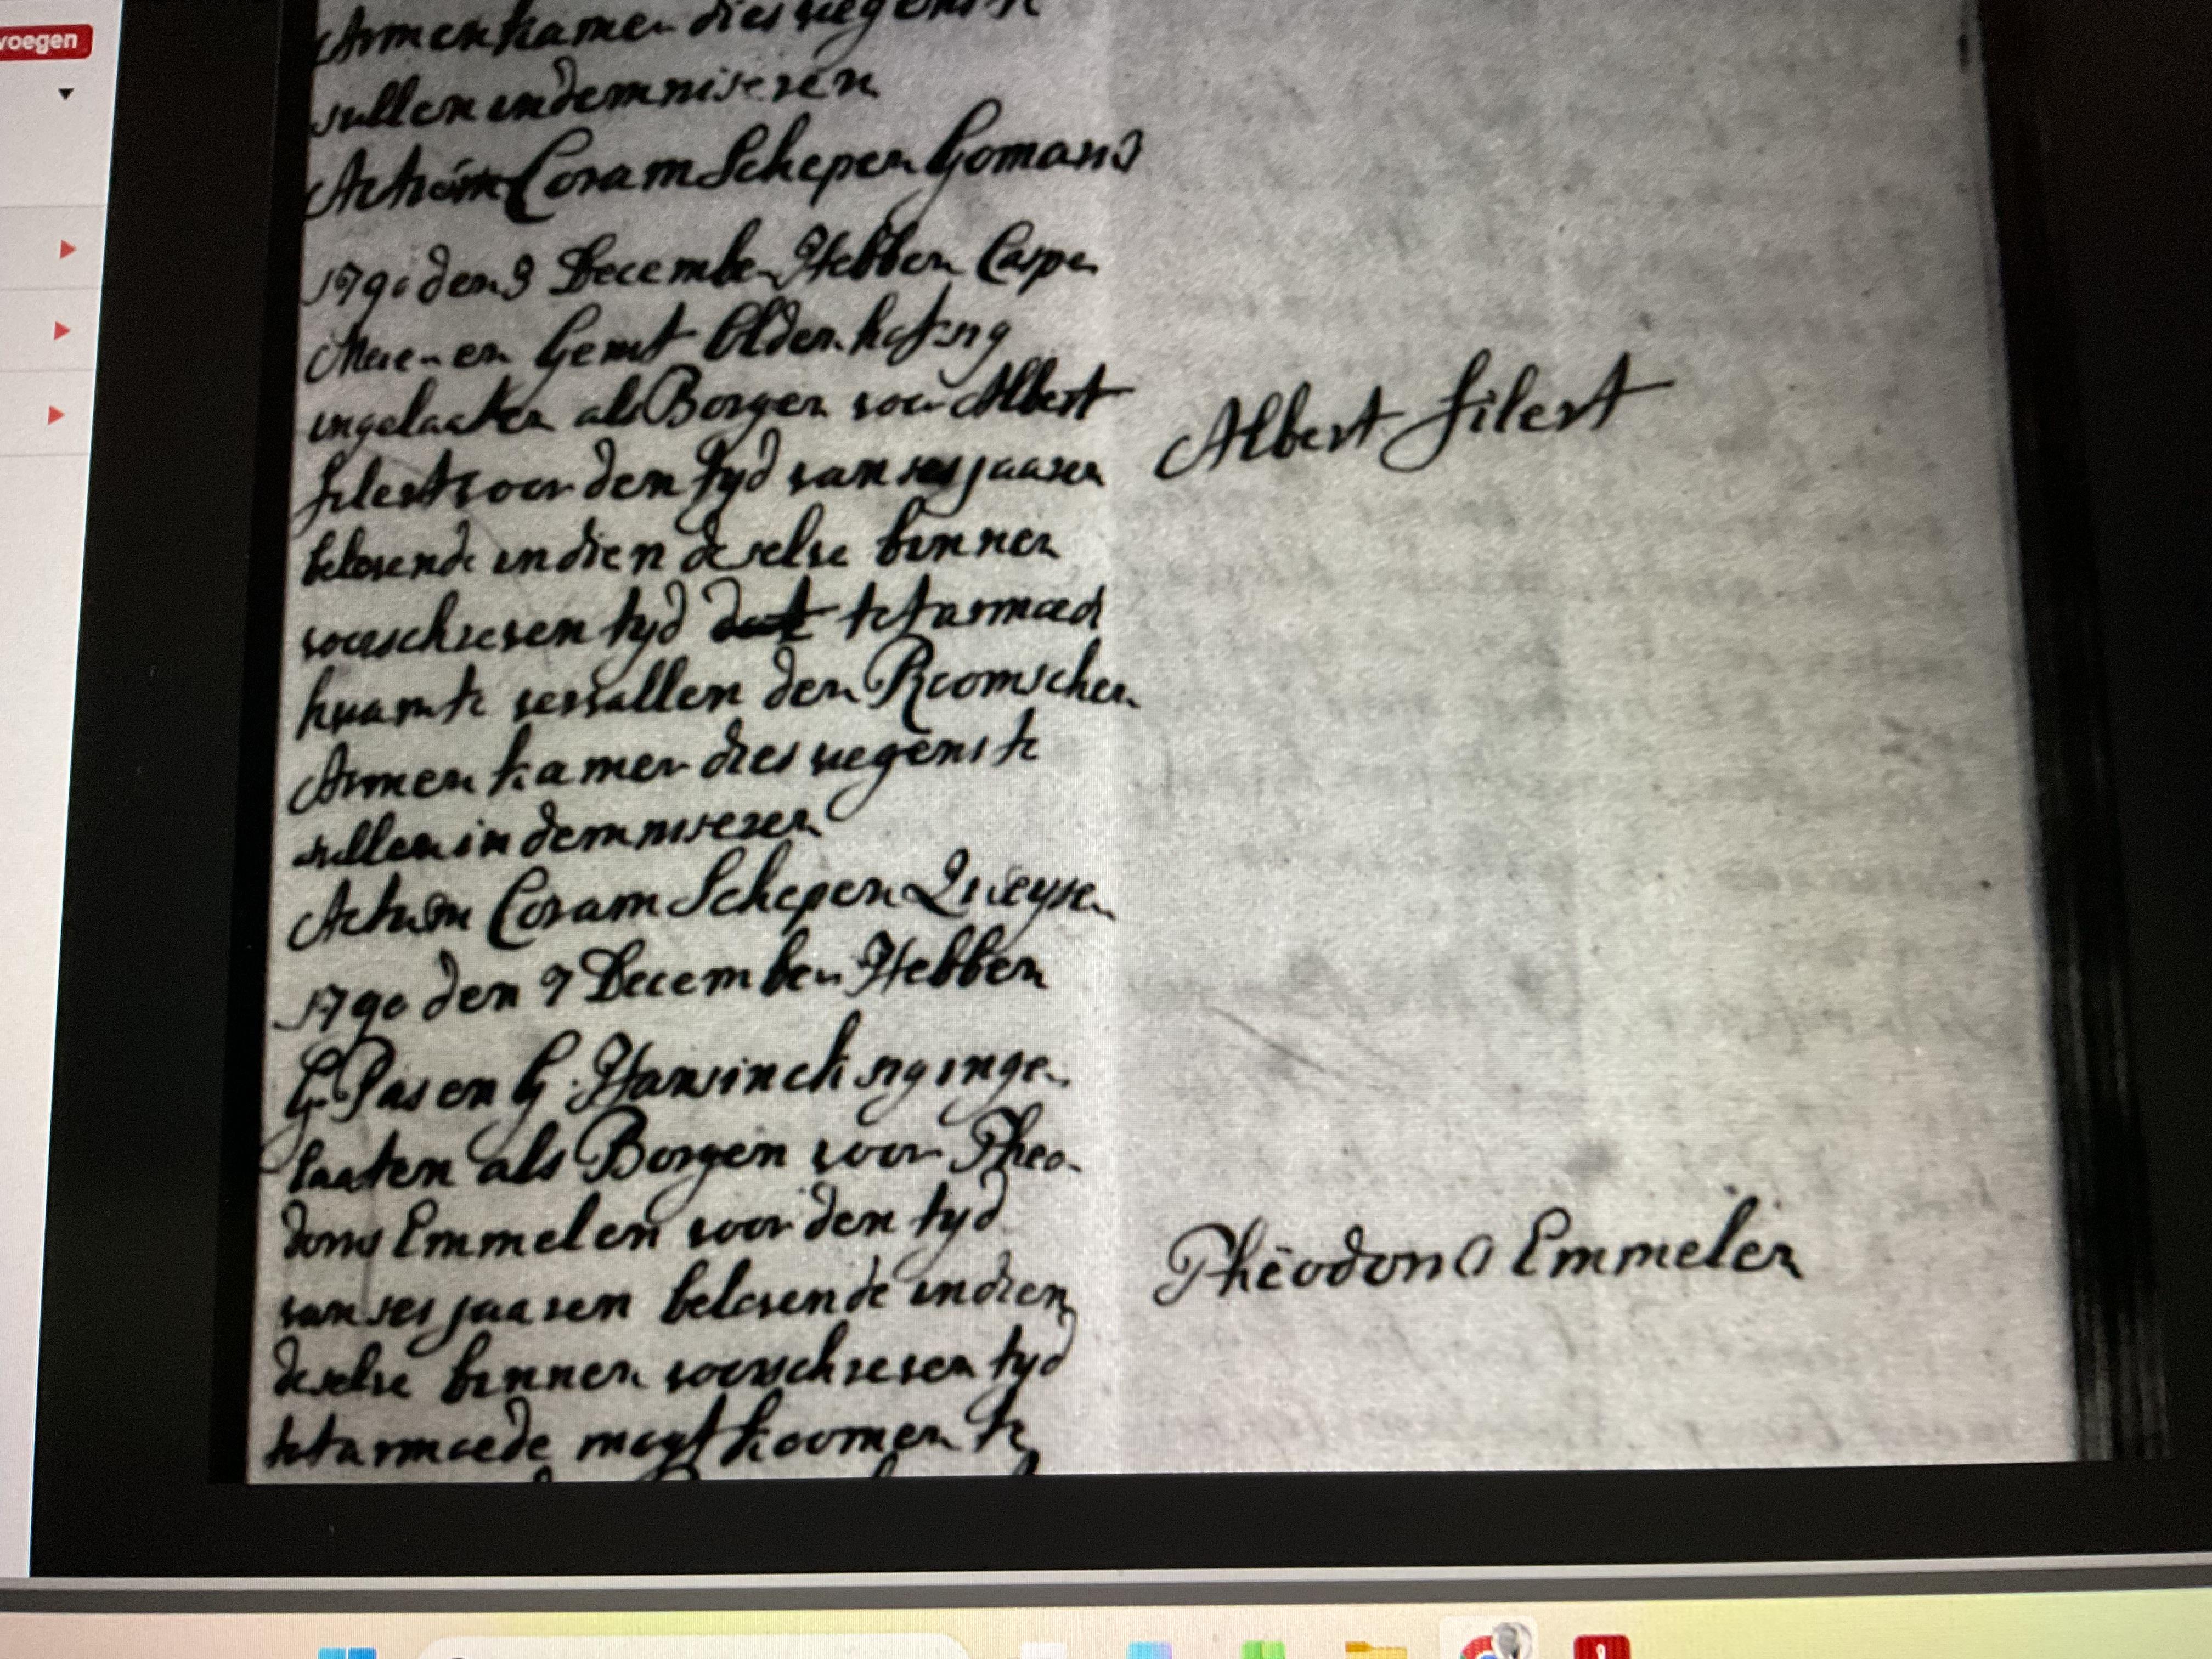 voegen
Armenkamer dies wegens te
sullen indemniseren
Actum Coram Schepen Gomans
1790 den 3 December Hebben Casper
Meier en Gerrit Oldenhof sig
ingelaaten als Borgen voor Albert
Albert Filert
Filert voor den tyd van ses jaaren
belovende indien deselve binnen
voorschreven tyd tot armoed
kwam te vervallen den Roomschen
Armenkamer dies wegens te
sullen indemniseren
Actum Coram Schepen Queysen
1790 den 9 December Hebben
G. Pas en G. Hansinck sig inge
laaten als Borgen voor Theo-
dorus Emmelen voor den tyd
Theodorus Emmelen
van ses jaaren belovende indien
deselve binnen voorschreven tyd
tot armoede mogt koomen te